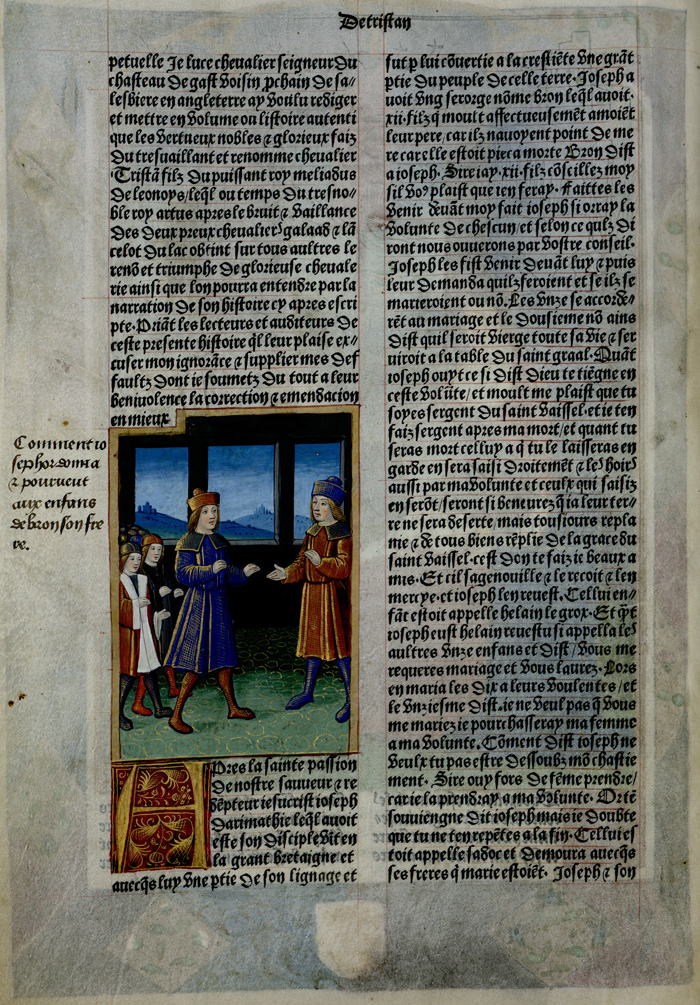 De tristan
petuelle Je luce chevalier seigneur du
chasteau de gast voisin ꝓchain de sa-
lesbiere en angleterre ay voulu rediger
et mettre en volume ou listoire autenti
que les vertueux nobles ⁊ glorieux faiz
du tresvaillant et renomme chevalier
Tristã filz du puissant roy meliadus
de leonoys/leq̃l ou temps du tresno-
ble roy artus apres le bruit ⁊ vaillance
des deux preux chevalierˢ galaad ⁊ lã
celot du lac obtint sur tous aultres le
renõ et triumphe de glorieuse chevale
rie ainsi que lon pourra entendre par la
narration de son histoire cy apres escri
pte. Priãt les lecteurs et auditeurs de
ceste presente histoire q̃l leur plaise ex-
cuser mon ignorãce ⁊ supplier mes def
faultz dont ie soumetz du tout a leur
benivolence la correction ⁊ emendacion
en mieux
Comment io
seph ordonna
⁊ pourveut
aux enfans
de bron son fre
re.
Apres la sainte passion
de nostre sauveur ⁊ re
dẽpteur iesucrist ioseph
darimathie leq̃l avoit
este son disciple vit en
la grant bretaigne et
avecq̃s luy vne ptie de son lignage et
fut p lui cõvertie a la crestiẽte vne grãt
ptie du peuple de celle terre. Joseph a
voit vng serorge nõme bron leq̃l avoit.
xii. filz q̃ moult affectueusemẽt amoiẽt
leur pere, car ilz navoyent point de me
re car elle estoit pieca morte Bron dist
a ioseph. Sire iay .xii. filz cõseillez moy
sil voꝰ plaist que ien feray. Faittes les
venir devãt moy fait ioseph si orray la
volunte de chescun/et selon ce qulz di
ront nous ouverons par vostre conseil.
Joseph les fist venir devãt luy ⁊ puis
leur demanda quilz feroient et se ilz se
marieroient ou nõ. Les vnze se accorde-
rẽt au mariage et le dousieme nõ ains
dist quil seroit vierge toute sa vie ⁊ ser
viroit a la table du saint graal. Quãt
ioseph ouyt ce si dist dieu te tiẽgne en
ceste volũte/et moult me plaist que tu
soyes sergent du saint vaissel. et ie ten
faiz sergent apres ma mort/et quant tu
seras mort celluy a q̃ tu le laisseras en
garde en sera saisi droitemẽt ⁊ leˢ hoirˢ
aussi par ma volunte et ceulx qui saisiz
en serõt/seront si beneurez q̃ ia leur ter-
re ne sera deserte, mais tousiours repla
nie ⁊ de tous biens rẽplie de la grace du
saint vaissel. cest don te faiz ie beaux a
mis. Et cil sagenouille ⁊ le recoit ⁊ len
mercye. et ioseph len revest. Cellui en-
fãt estoit appelle helain le grox. Et q̃t
ioseph eust helain revestu si appella leˢ
aultres vnze enfans et dist/vous me
requeres mariage et vous laurez. Lors
en maria les dix a leurs voulentes/et
le vnziesme dist. ie ne veul pas q̃ vous
me mariez ie pourchasseray ma femme
a ma volunte. Cõment dist ioseph ne
veulx tu pas estre dessoubz mõ chastie
ment. Sire ouy fors de fẽme prendre/
car ie la prendray a ma volunte. Or tẽ
souviengne dit ioseph mais ie doubte
que tu ne ten repẽtes a la fin. Cellui es
toit appelle sadoc et demoura avecq̃s
ses freres q̃ marie estoiẽt. Joseph ⁊ son